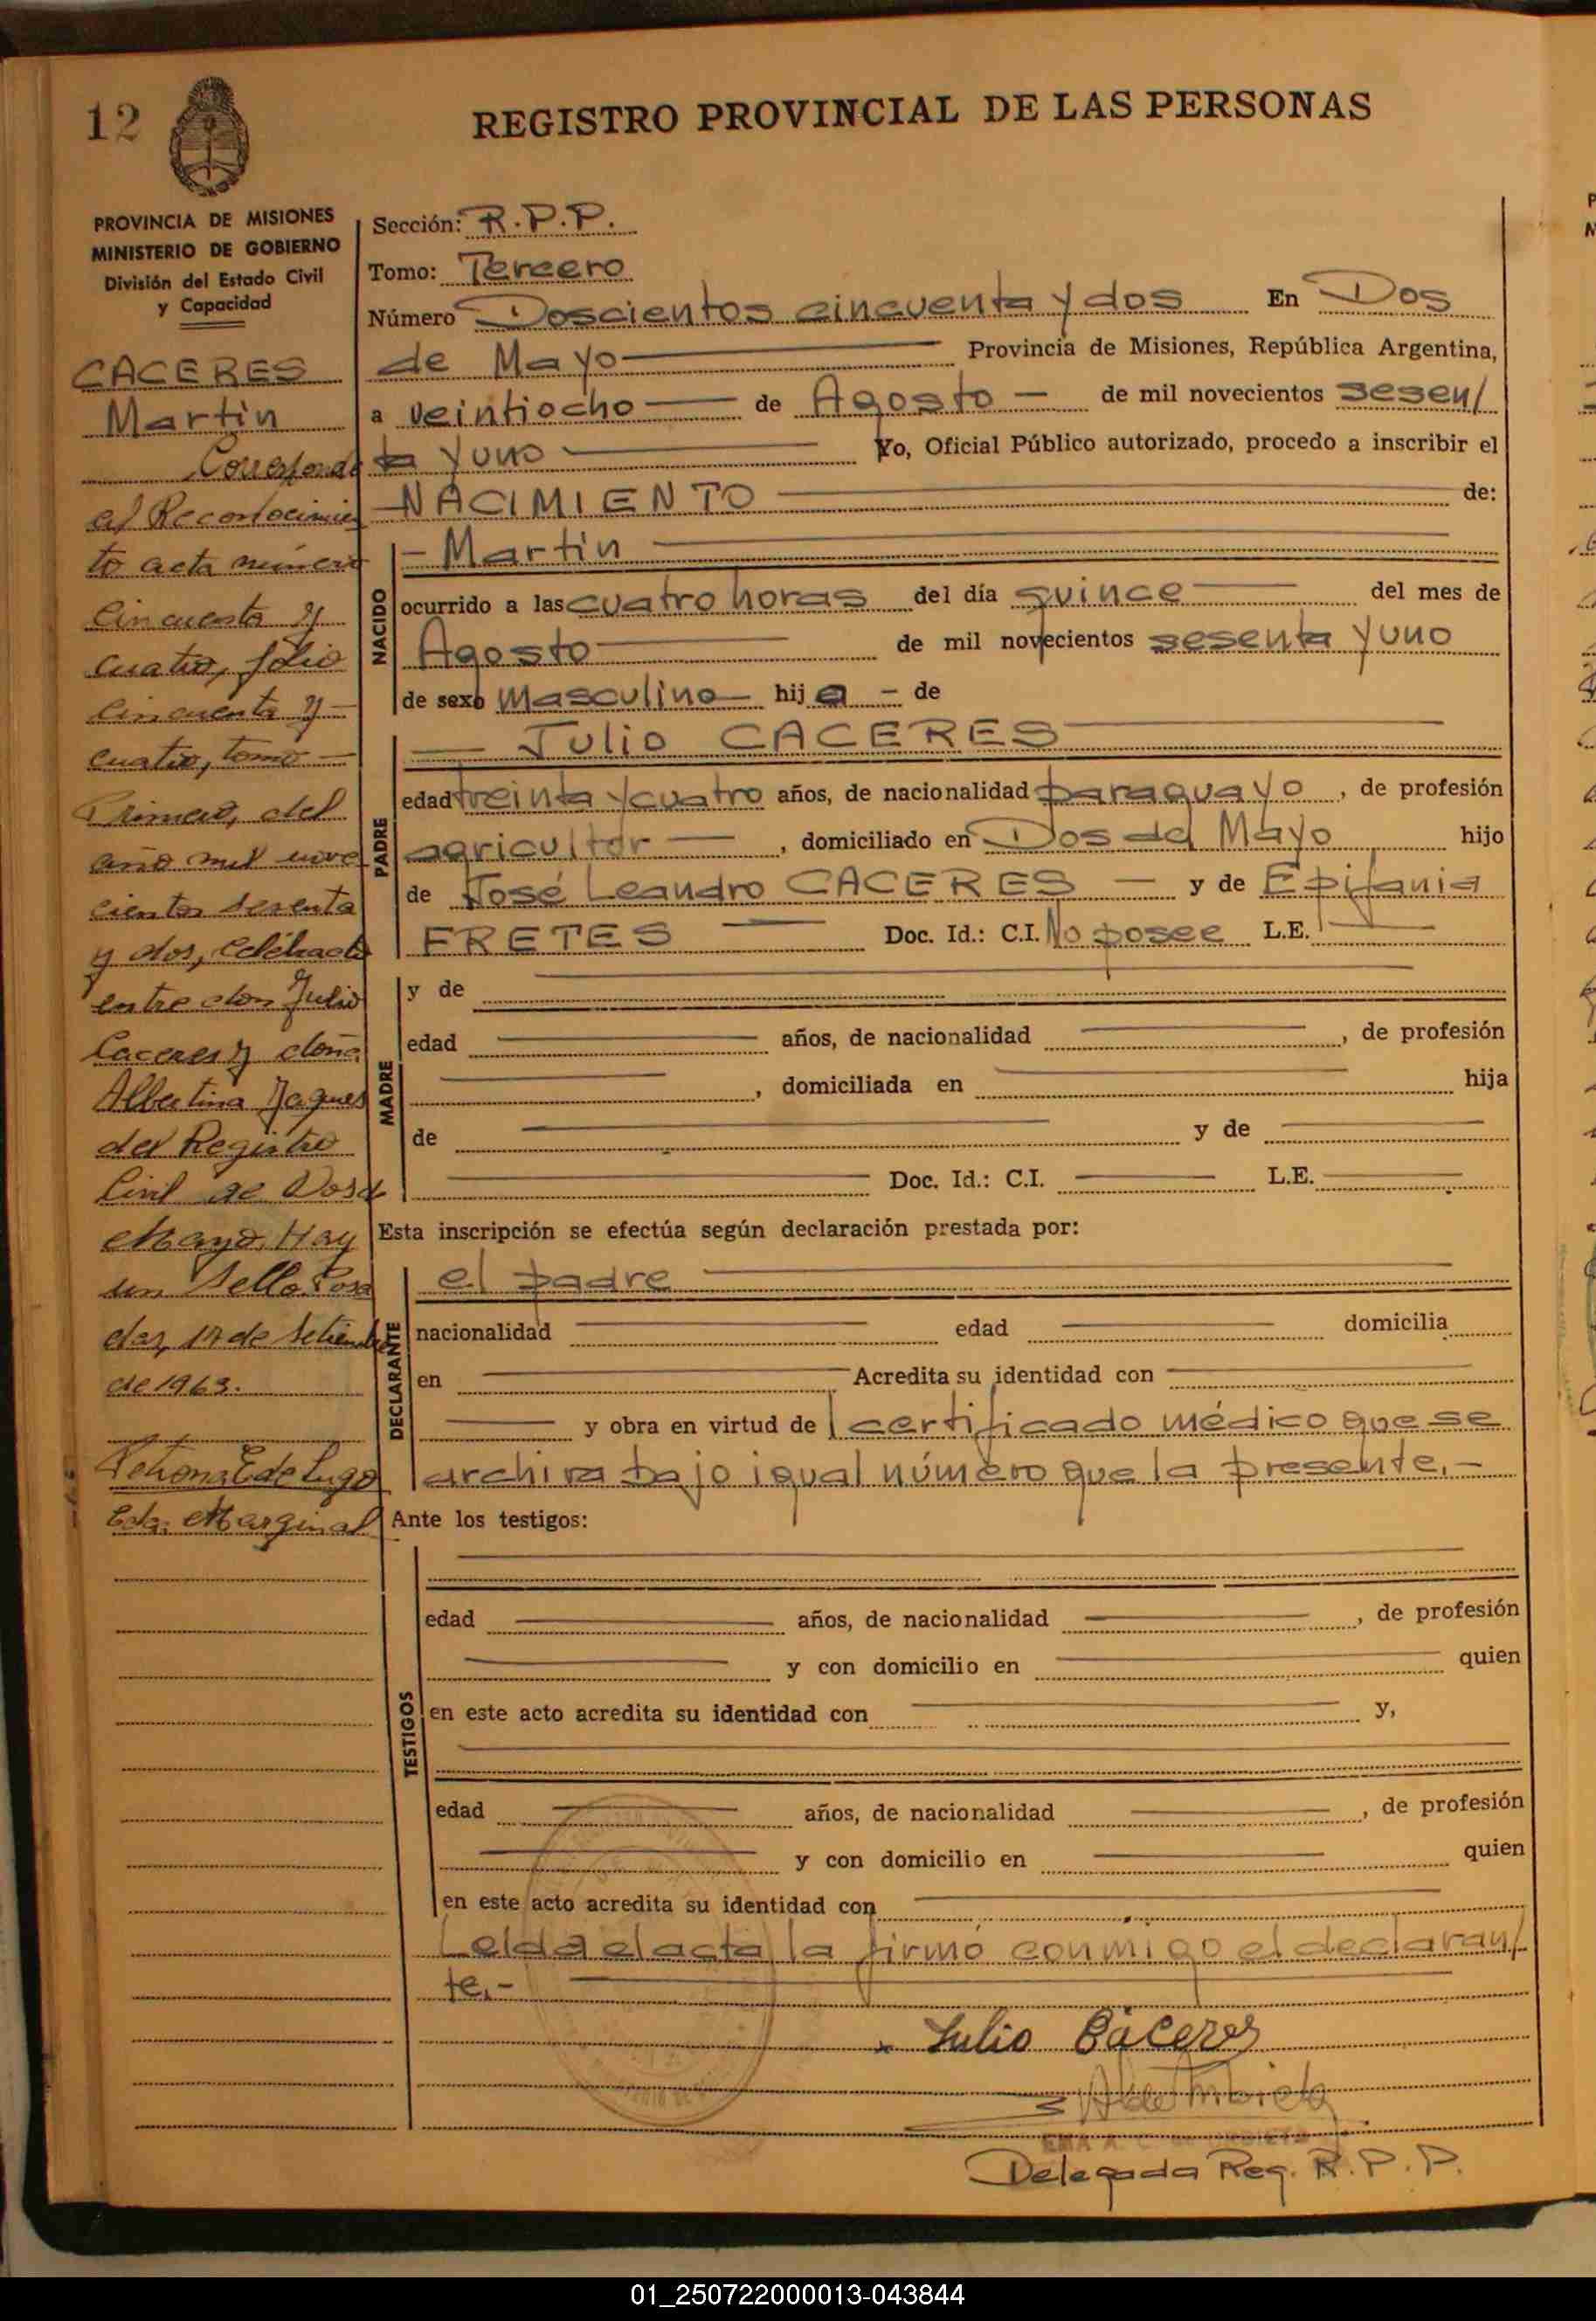 12
REGISTRO PROVINCIAL DE LAS PERSONAS
PROVINCIA DE MISIONES
MINISTERIO DE GOBIERNO
División del Estado Civil
y Capacidad
CACERES
Martin
Corresponde
al Reconocimien
to acta número
Cincuenta y
cuatro, folio
Cincuenta y —
Cuatro, tomo —
Primero, del
año mil nove
cientos sesenta
y dos, Celébrado
entre don Julio
Caceres y doña
Albertina Jaques
del Registro
Civil de Dos de
Mayo. Hay
un Sello Posa
das, 17 de Setiembre
de 1963.
E. de Lugo
Marginal
Sección: R.P.P.
Tomo: Tercero
Número Doscientos cincuenta y dos En Dos
de Mayo Provincia de Misiones, República Argentina,
a veintiocho — de Agosto — de mil novecientos sesen/
ta y uno Yo, Oficial Público autorizado, procedo a inscribir el
NACIMIENTO de:
NACIDO
— Martin
ocurrido a las cuatro horas del día quince del mes de
Agosto de mil novecientos sesenta y uno
de sexo Masculino — hij a — de
PADRE
— Julio CACERES
edad treinta y cuatro años, de nacionalidad paraguayo, de profesión
agricultor —, domiciliado en Dos de Mayo hijo
de José Leandro CACERES — y de Epifania
FRETES — Doc. Id.: C.I. No posee L.E. —
MADRE
y de
edad años, de nacionalidad , de profesión
, domiciliada en hija
de y de
Doc. Id.: C.I. L.E.
Esta inscripción se efectúa según declaración prestada por:
DECLARANTE
el padre
nacionalidad edad domicilia
en Acredita su identidad con
y obra en virtud de certificado médico que se
archiva bajo igual número que la presente.—
Ante los testigos:
TESTIGOS
edad años, de nacionalidad , de profesión
y con domicilio en quien
en este acto acredita su identidad con y,
edad años, de nacionalidad , de profesión
y con domicilio en quien
en este acto acredita su identidad con
Leída el acta, la firmó conmigo el declaran/
te.—
x Julio Cáceres
Delegada Reg. R.P.P.
01_250722000013-043844